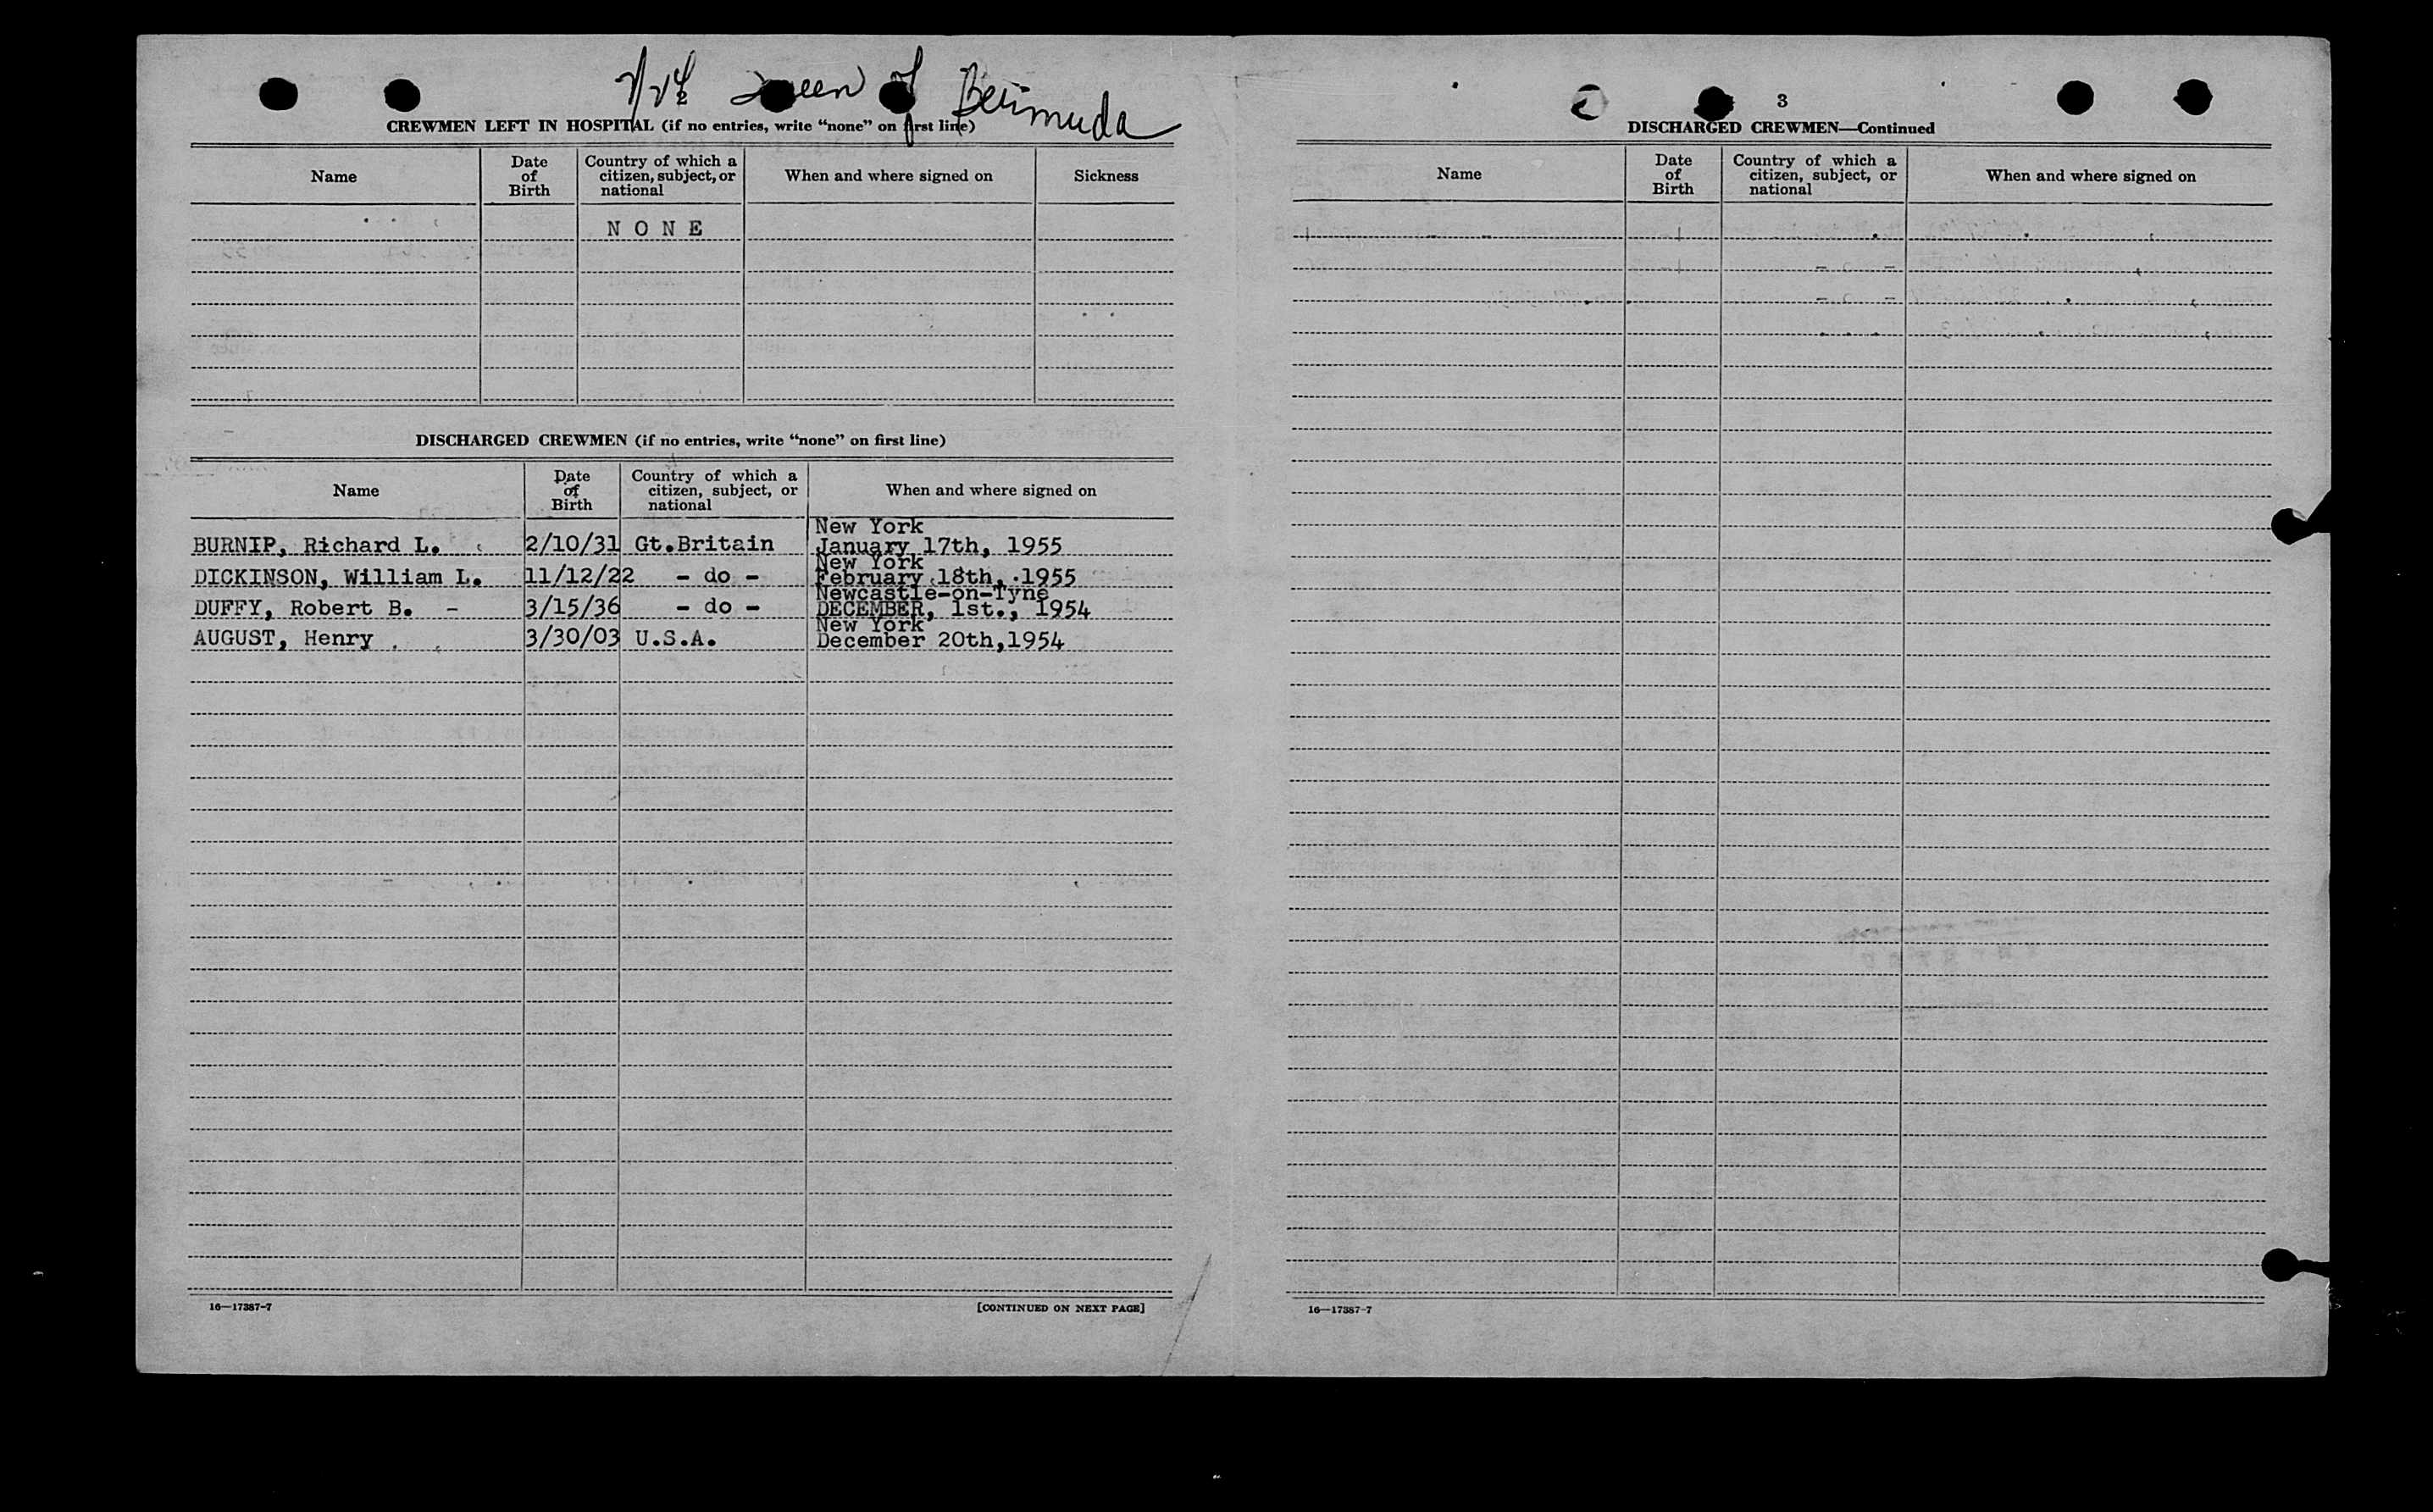 Queen of Bermuda
CREWMEN LEFT IN HOSPITAL (if no entries, write “none” on first line)
Name Date of Birth Country of which a citizen, subject, or national When and where signed on Sickness
N O N E
DISCHARGED CREWMEN (if no entries, write “none” on first line)
Name Date of Birth Country of which a citizen, subject, or national When and where signed on
New York
BURNIP, Richard L. 2/10/31 Gt.Britain January 17th, 1955
New York
DICKINSON, William L. 11/12/22 - do - February 18th, 1955
Newcastle-on-Tyne
DUFFY, Robert B. - 3/15/36 - do - DECEMBER, 1st., 1954
New York
AUGUST, Henry 3/30/03 U.S.A. December 20th,1954
16—17387-7 [CONTINUED ON NEXT PAGE]
3
DISCHARGED CREWMEN—Continued
Name Date of Birth Country of which a citizen, subject, or national When and where signed on
16—17387-7